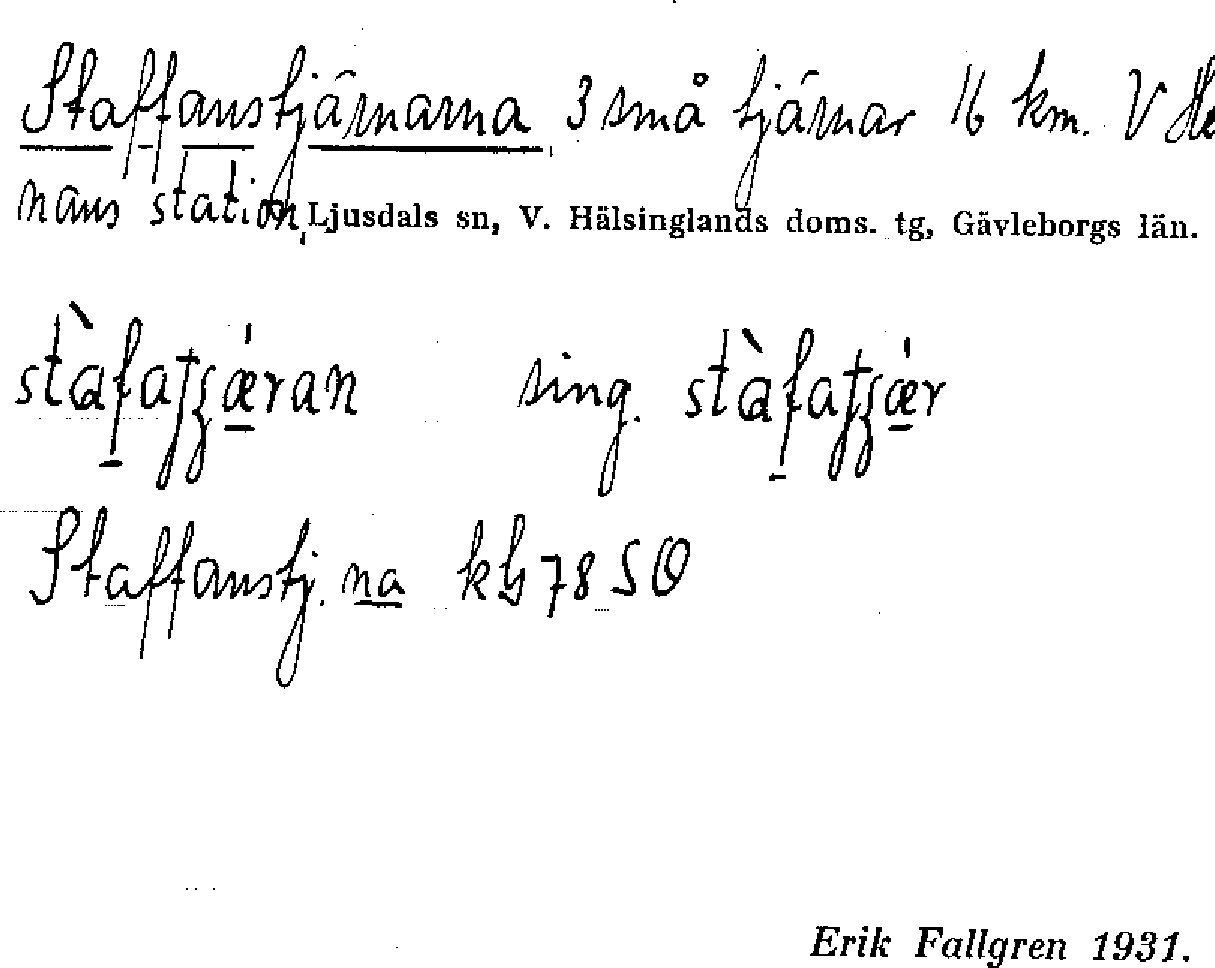 Staffanstjärnarna, 3 små tjärnar 16 km. V He
nans station, Ljusdals sn, V. Hälsinglands doms. tg, Gävleborgs län.
sing.
Staffanstj. na kb 78 SO
Erik Fallgren 1931.